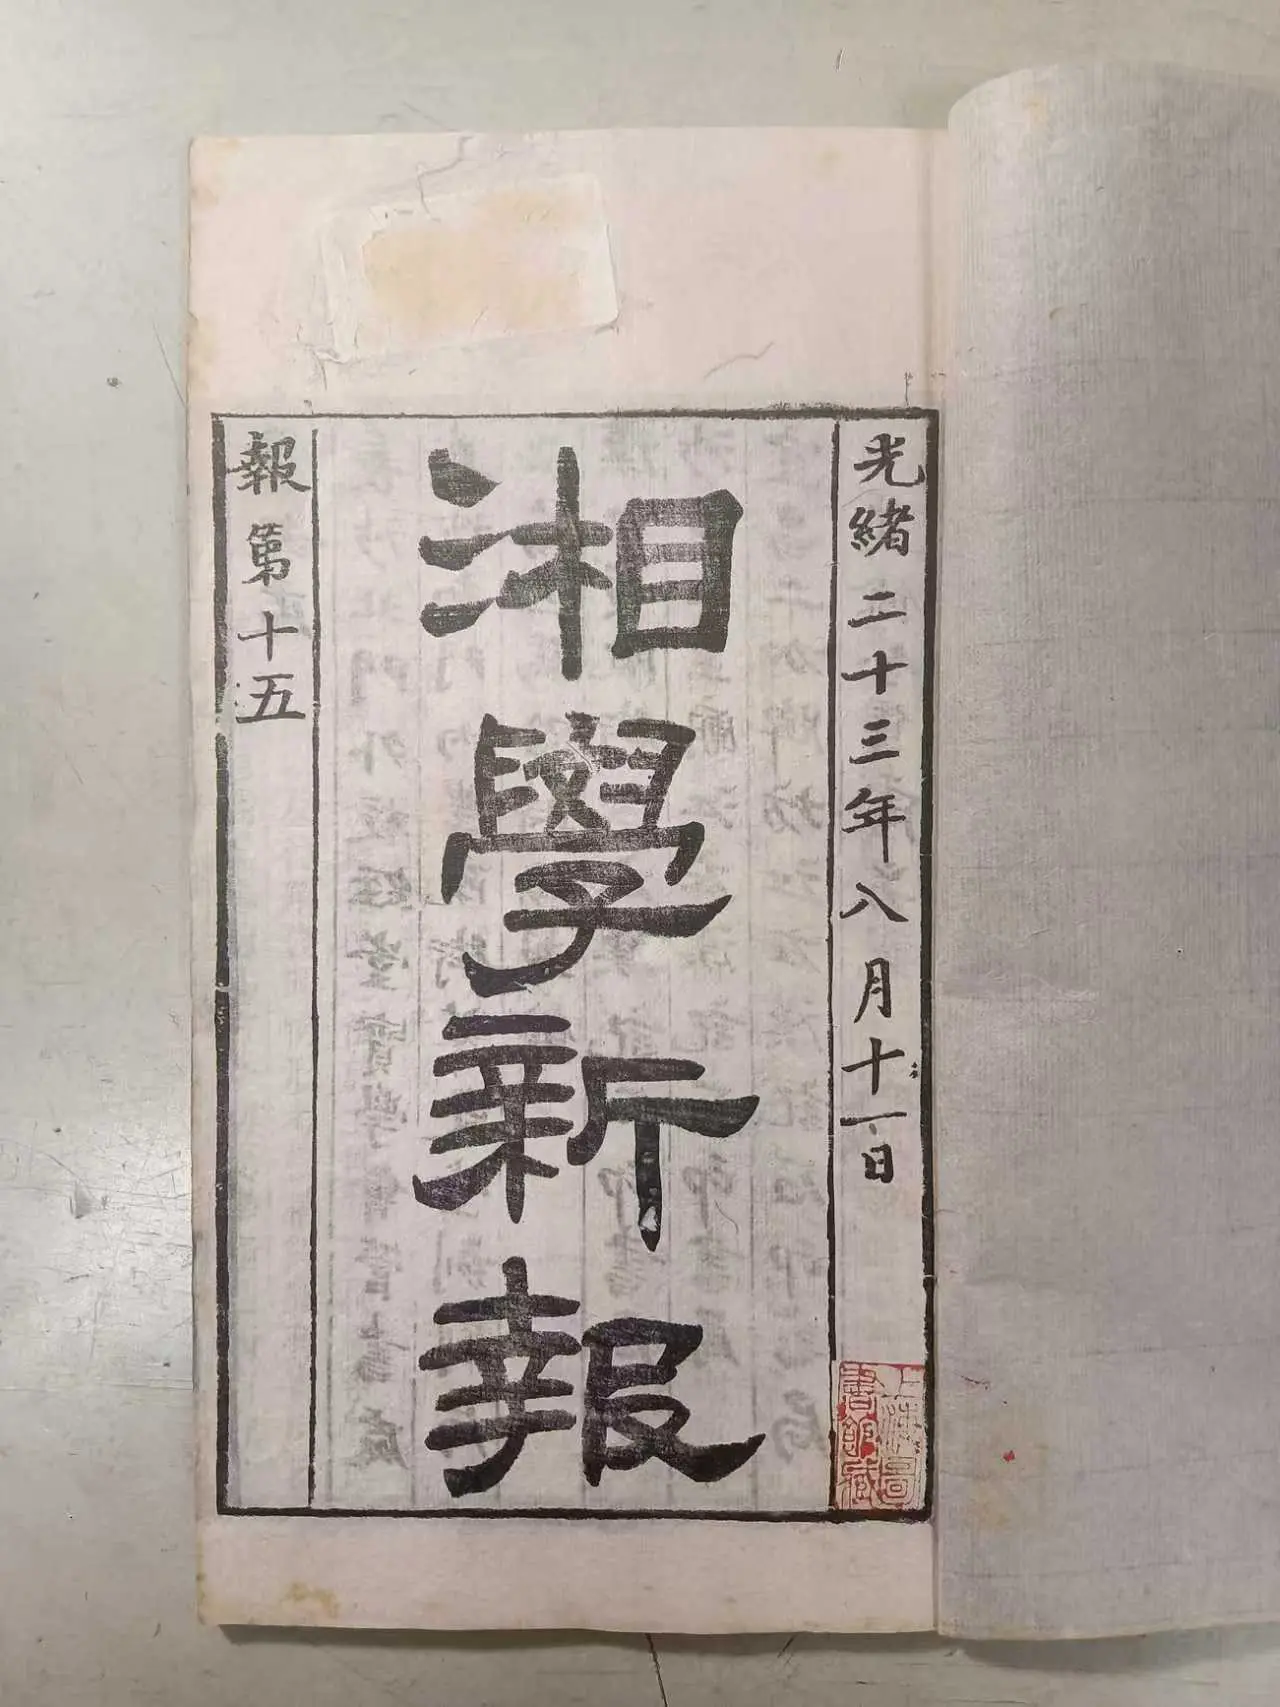 光緒二十三年八月十一日
湘學新報
報第十五
上海圖
書館藏